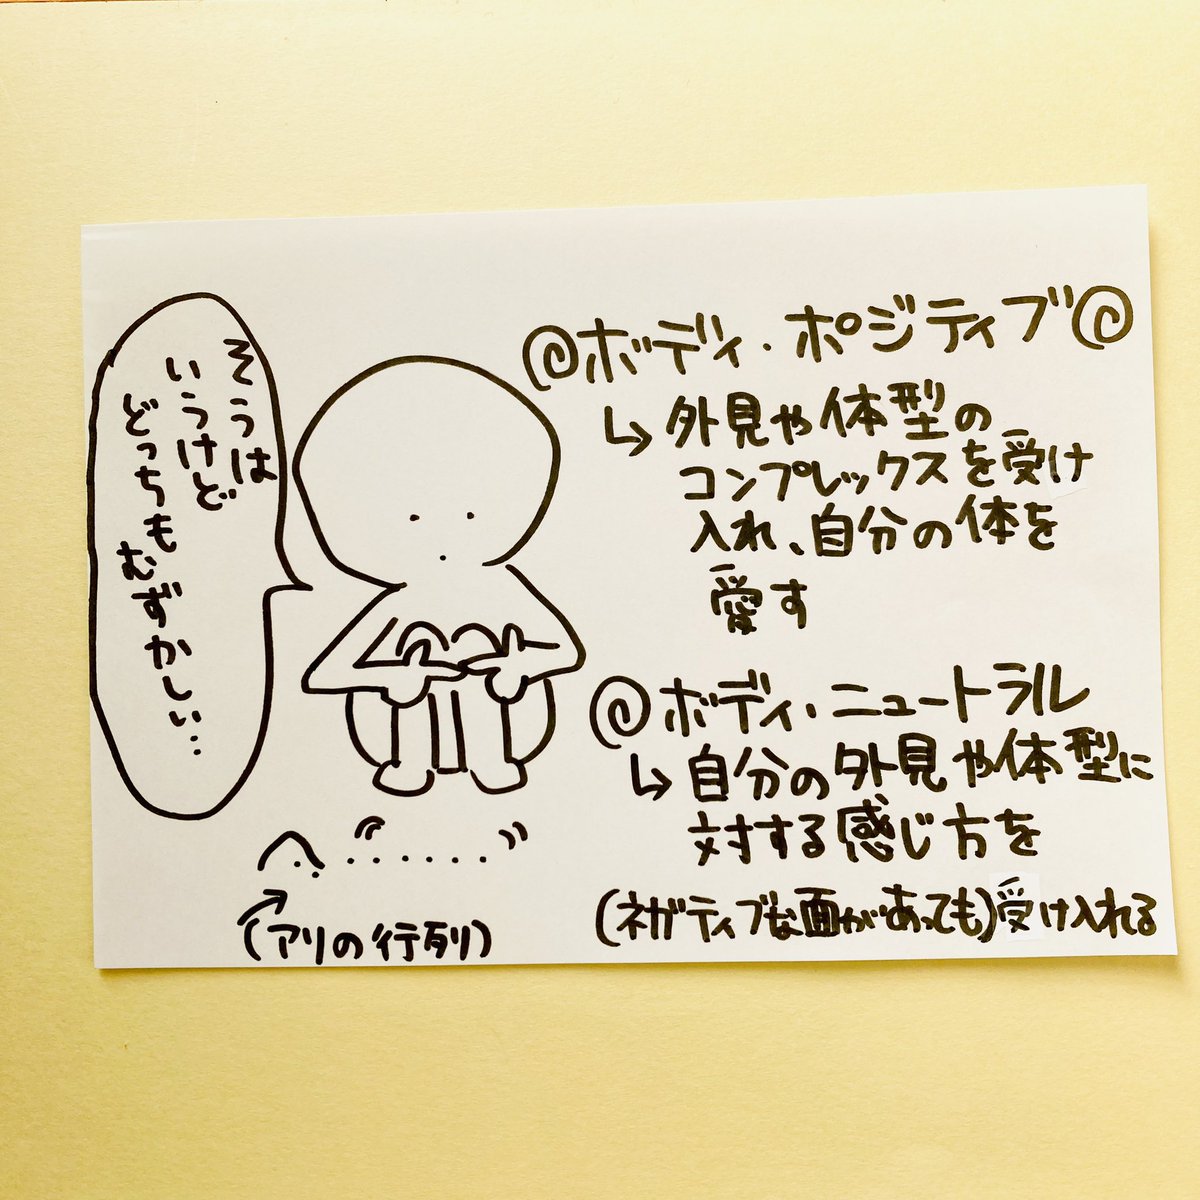 @ボディ・ポジティブ@
↳外見や体型の
コンプレックスを受け
入れ、自分の体を
愛す
@ボディ・ニュートラル
↳自分の外見や体型に
対する感じ方を
(ネガティブな面があっても)受け入れる
そうは
いうけど
どっちも
むずかしい…
(アリの行列)